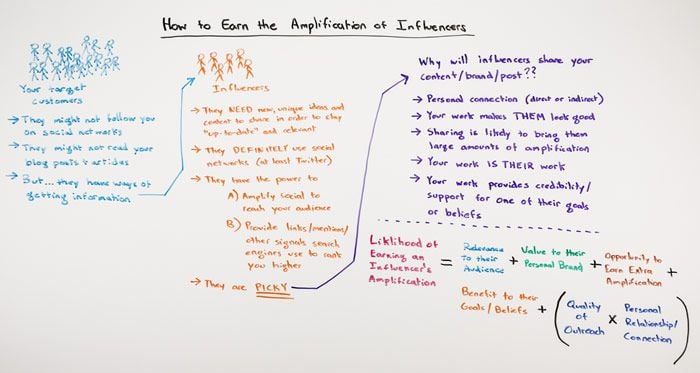 How to Earn the Amplification of Influencers
Your target
customers
→ They might not follow you
on social networks
→ They might not read your
blog posts + articles
→ But... they have ways of
getting information
Influencers
→ They NEED new, unique ideas and
content to share in order to stay
"up-to-date" and relevant
→ They DEFINITELY use social
networks (at least Twitter)
→ They have the power to
A) Amplify social to
reach your audience
B) Provide links/mentions/
other signals search
engines use to rank
you higher
→ They are PICKY
Why will influencers share your
content/brand/post??
→ Personal connection (direct or indirect)
→ Your work makes THEM look good
→ Sharing is likely to bring them
large amounts of amplification
→ Your work IS THEIR work
→ Your work provides credibility/
support for one of their goals
or beliefs
Liklihood of
Earning an
Influencer's
Amplification
=
Relevance
To their
Audience
+
Value to their
Personal Brand
+
Opportunity to
Earn Extra
Amplification
+
Benefit to their
Goals/Beliefs
+
(Quality
of
Outreach
x
Personal
Relationship/
Connection)